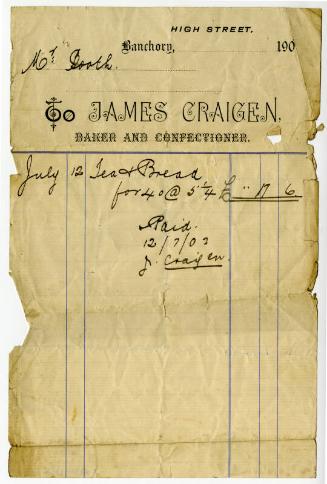 HIGH STREET.
Banchory, 190
Mr Booth.
To JAMES CRAIGEN,
BAKER AND CONFECTIONER.
July 12 Tea & Bread
for 40 @ 5¼ £ " 17 6
Paid.
12/7/02
J. Craigen.